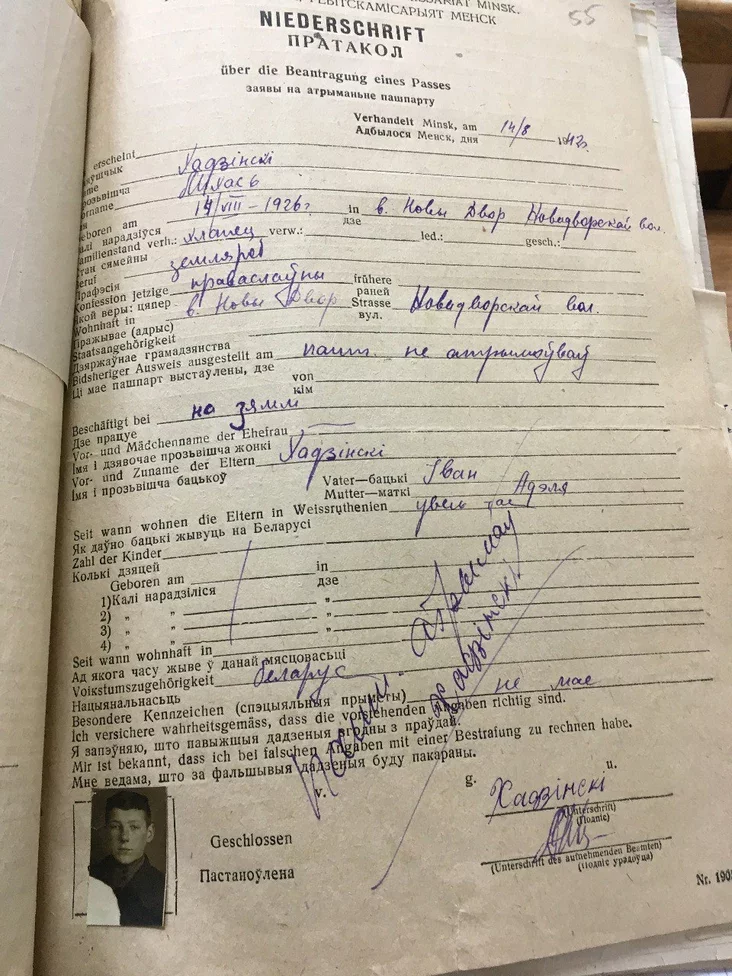 МІNSK.
МЕНСК
55
NIEDERSCHRIFT
ПРАТАКОЛ
über die Beantragung eines Passes
заявы на атрыманьне пашпарту
Verhandelt Minsk, am 14/8 1942г.
Адбылося Менск, дня
erscheint
Хадзінскі
прозьвішча Міхась
14/VIII - 1926г in в. Новы Двор Новадворскай вол.
geboren am дзе
нарадзіўся
Familienstand verh.: хлапец verw.: led.: gesch.:
сямейны
земляроб
Прафэсія
Konfession jetzige праваслаўны frühere
Якой веры: цяпер раней
Wohnhaft in в. Новы Двор Strasse Новадворскай вол.
Пражывае (адрыс) вул.
Staatsangehörigkeit
Дзяржаўнае грамадзянства
Bidsheriger Ausweis ausgestellt am пашп. не атрымоўваў
Ці мае пашпарт выстаўлены, дзе von
кім
Beschäftigt bei на зямлі
Дзе працуе
Vor- und Mädchenname der Ehefrau
Імя і дзявочае прозьвішча жонкі
Vor- und Zuname der Eltern Хадзінскі
Імя і прозьвішча бацькоў Vater—бацькі Іван
Mutter—маткі Адэля
Seit wann wohnen die Eltern in Weissrythenien увесь час
Як даўно бацькі жывуць на Беларусі
Zahl der Kinder
Колькі дзяцей
Geboren am in
1) Калі нарадзіліся дзе
2) „ „ „
3) „ „ „
4) „ „ „
Seit wann wohnhaft in
Ад якога часу жыве ў данай мясцовасьці
Volkstumszugehörigkeit беларус
Нацыянальнасьць
Besondere Kennzeichen (спэцыяльныя прыметы) не мае
Ich versichere wahrheitsgemäss, dass die vorstehenden Angaben richtig sind.
Я запэўняю, што павыжшыя дадзеныя згодны з праўдай.
Mir ist bekannt, dass ich bei falschen Angaben mit einer Bestrafung zu rechnen habe.
Мне ведама, што за фальшывыя дадзеныя буду пакараны.
v. g. u.
Пашп. атрымаў
Хадзінскі
Хадзінскі
(Unterschrift)
(Подпіс)
Geschlossen
Пастаноўлена
(Unterschrift des aufnehmenden Beamten)
(Подпіс урадоўца)
Nr. 190